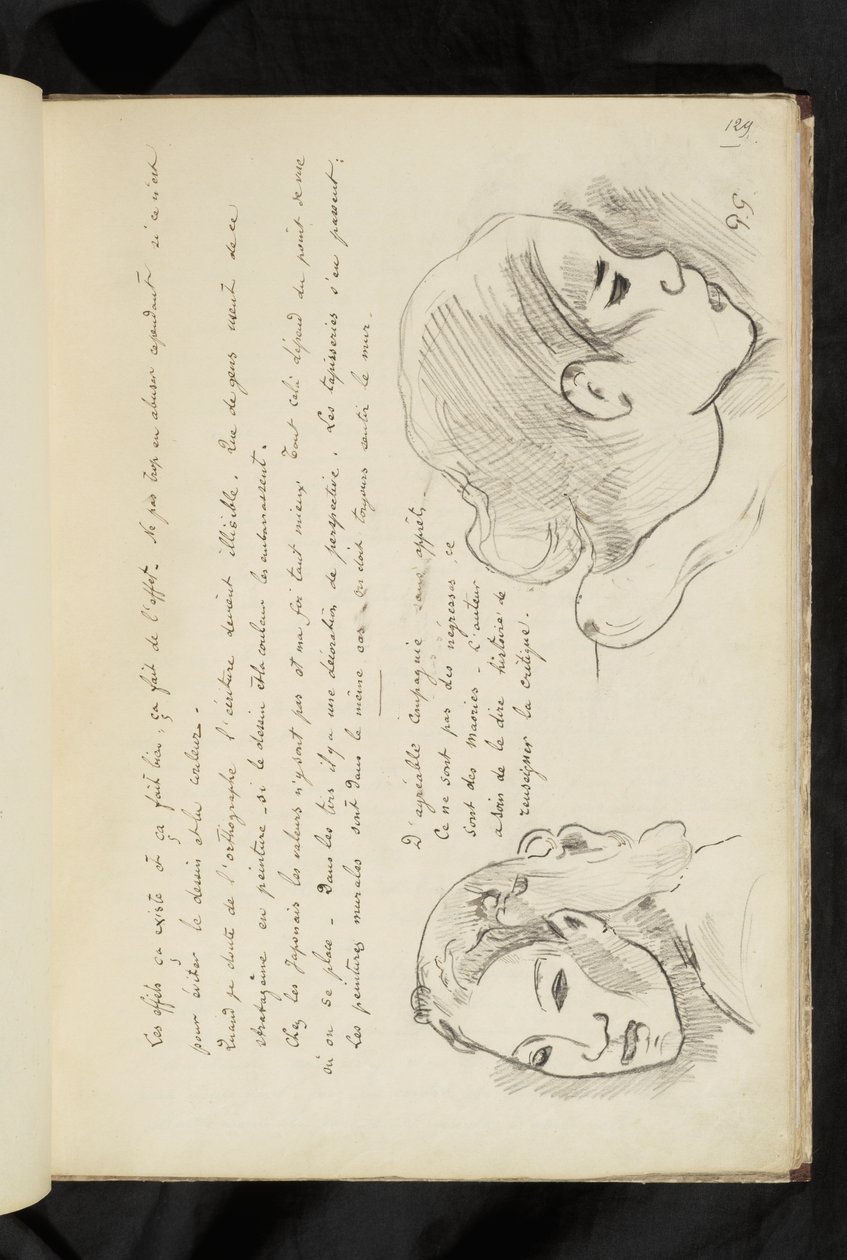 129.
Les effets ça existe et ça fait bien, ça fait de l'effet. Ne pas trop en abuser cependant si ce n'est
pour éviter le dessin et la couleur.
Quand je doute de l'orthographe l'écriture devient illisible. Que de gens usent de ce
stratagème en peinture - si le dessin et la couleur les embarrassent.
Chez les Japonais les valeurs n'y sont pas et ma foi tant mieux. Tout celà dépend du point de vue
où on se place - Dans les tirs il y a une décoration de perspective. Les tapisseries s'en passent;
Les peintures murales sont dans le même cas - On doit toujours sentir le mur.
D'agréable compagnie sans apprêt,
Ce ne sont pas des négresses, ce
sont des Maories - L'auteur
a soin de le dire histoire de
renseigner la critique.
P.G